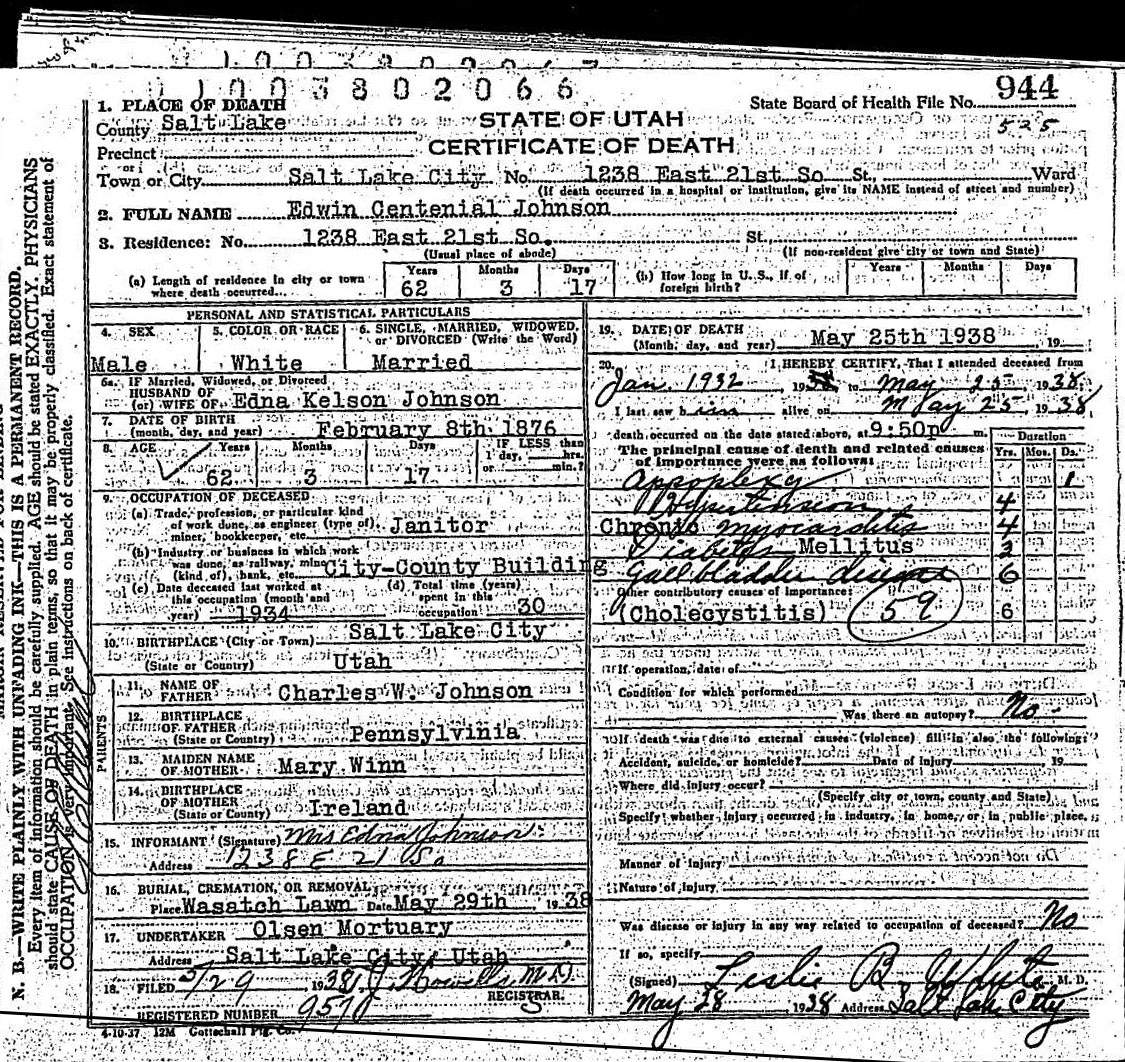 0 1 0 0 3 8 0 2 0 6 6
State Board of Health File No. 944
525
1. PLACE OF DEATH
STATE OF UTAH
County Salt Lake
CERTIFICATE OF DEATH
Precinct
or
Town or City Salt Lake City No. 1238 East 21st So St., Ward
(If death occurred in a hospital or institution, give its NAME instead of street and number)
2. FULL NAME Edwin Centenial Johnson
3. Residence: No. 1238 East 21st So. St.
(Usual place of abode) (If non-resident give city or town and State)
(a) Length of residence in city or town where death occurred Years 62 Months 3 Days 17
(b) How long in U. S., if of foreign birth? Years Months Days
PERSONAL AND STATISTICAL PARTICULARS
4. SEX Male
5. COLOR OR RACE White
6. SINGLE, MARRIED, WIDOWED, or DIVORCED (Write the Word) Married
6a. IF Married, Widowed, or Divorced
HUSBAND OF
(or) WIFE OF Edna Kelson Johnson
7. DATE OF BIRTH
(month, day, and year) February 8th 1876
8. AGE Years 62 Months 3 Days 17 IF LESS than 1 day, hrs. or min.?
9. OCCUPATION OF DECEASED
(a) Trade, profession, or particular kind
of work done, as engineer (type of), Janitor
miner, bookkeeper, etc.
(b) Industry or business in which work
was done, as railway, mine City-County Building
(kind of), bank, etc.
(c) Date deceased last worked at this occupation (month and year) 1934
(d) Total time (years) spent in this occupation 30
10. BIRTHPLACE (City or Town) Salt Lake City
(State or Country) Utah
PARENTS
11. NAME OF
FATHER Charles W. Johnson
12. BIRTHPLACE
OF FATHER
(State or Country) Pennsylvinia
13. MAIDEN NAME
OF MOTHER Mary Winn
14. BIRTHPLACE
OF MOTHER
(State or Country) Ireland
15. INFORMANT (Signature) Mrs Edna Johnson
Address 1238 E 21 So
16. BURIAL, CREMATION, OR REMOVAL
Place Wasatch Lawn Date May 29th, 1938
17. UNDERTAKER Olsen Mortuary
Address Salt Lake City, Utah
18. FILED 5/29 1938 M.D.
REGISTRAR.
REGISTERED NUMBER
4-10-37 12M Gottschall Ptg. Co.
19. DATE OF DEATH
(Month, day, and year) May 25th 1938 19
20. I HEREBY CERTIFY, That I attended deceased from
Jan. 1932 19 to May 25 1938
I last saw him alive on May 25 1938
death occurred on the date stated above, at 9:50p m.
Duration
Yrs. Mos. Ds.
The principal cause of death and related causes
of importance were as follows:
Appoplexy 1
Hypertension 4
Chronic myocarditis 4
Diabetes Mellitus 3
Gall bladder disease 6
Other contributory causes of importance:
(Cholecystitis) 59 6
If operation, date of
Condition for which performed
Was there an autopsy? No
If death was due to external causes (violence) fill in also the following:
Accident, suicide, or homicide? Date of injury 19
Where did injury occur?
(Specify city or town, county and State)
Specify whether injury occurred in industry, in home, or in public place,
Manner of injury
Nature of injury
Was disease or injury in any way related to occupation of deceased? No
If so, specify
(Signed) Leslie B White M. D.
May 28 1938 Address Salt Lake City
N. B.—WRITE PLAINLY WITH UNFADING INK—THIS IS A PERMANENT RECORD.
Every item of information should be carefully supplied. AGE should be stated EXACTLY. PHYSICIANS
should state CAUSE OF DEATH in plain terms, so that it may be properly classified. Exact statement of
OCCUPATION is very important. See instructions on back of certificate.